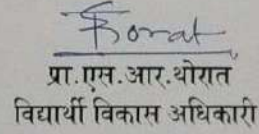 Thorat
प्रा.एस.आर.थोरात
विद्यार्थी विकास अधिकारी